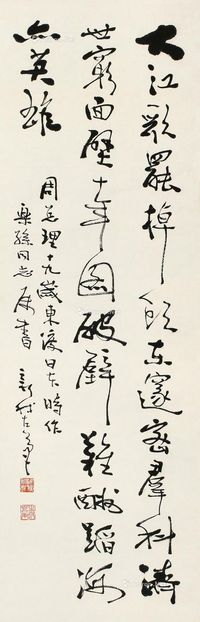 大江歌罷掉頭東邃密羣科濟
世窮面壁十年圖破壁難酬蹈海
亦英雄
周总理十九歲東渡日本時作
同志屬書
新我左筆